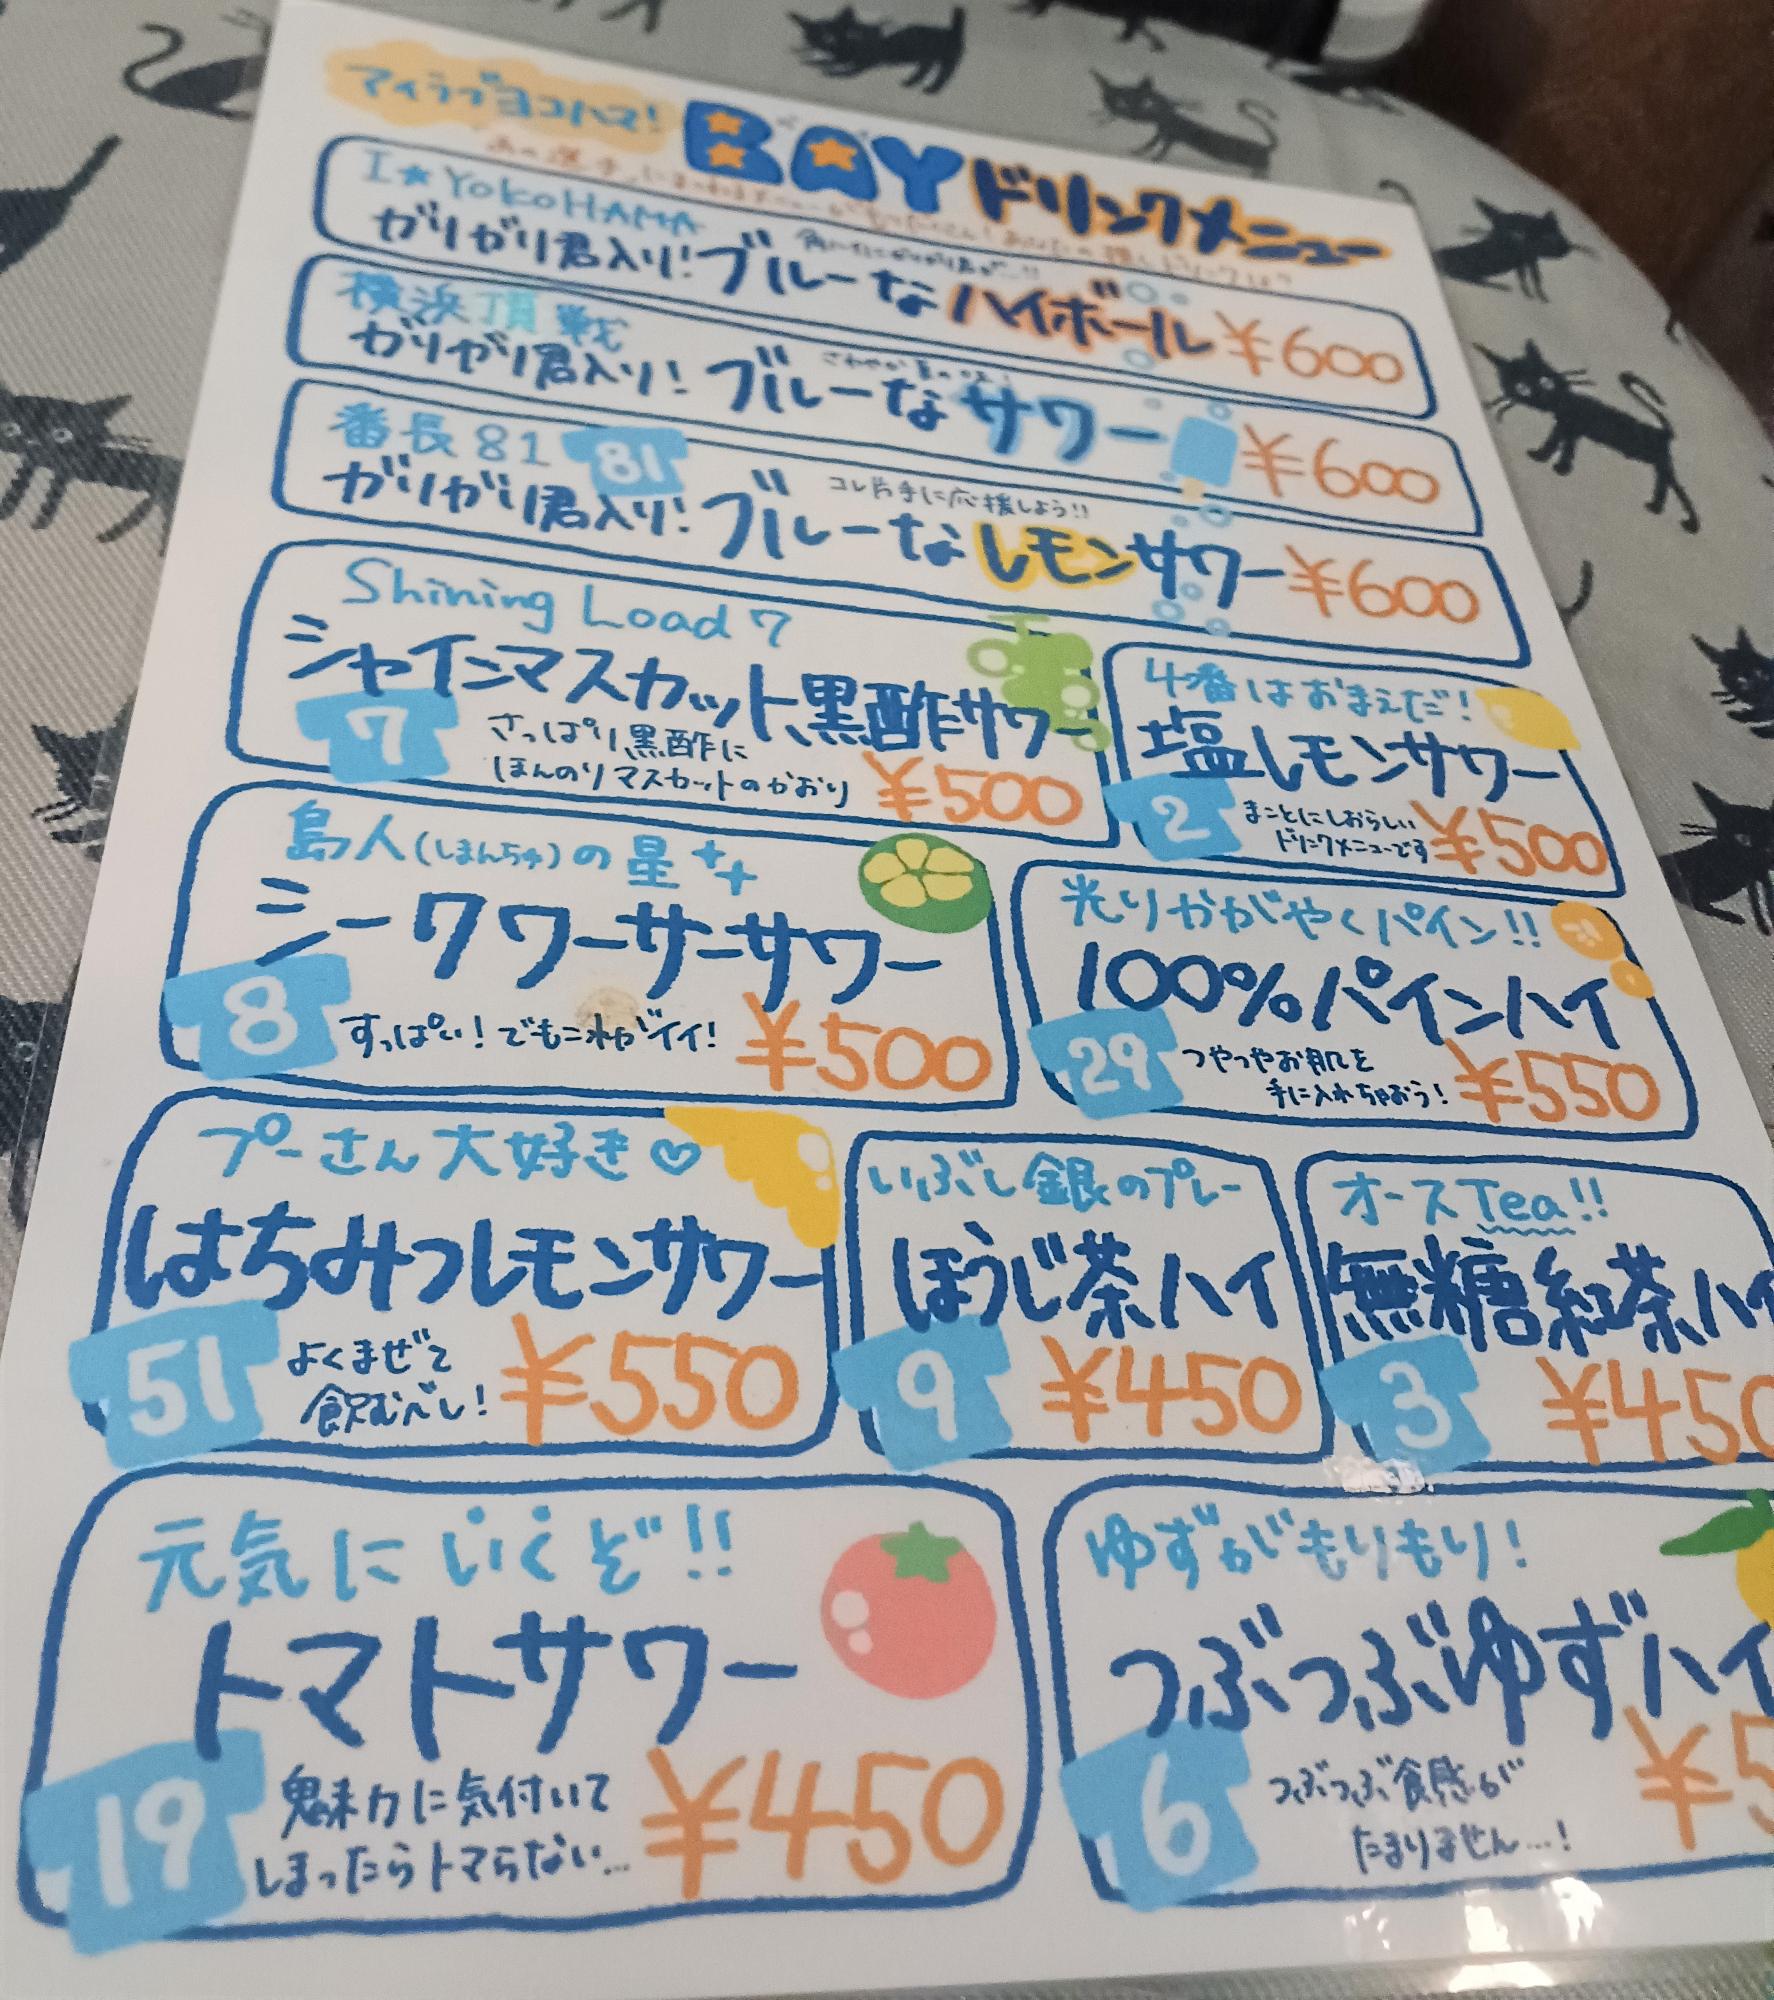 アイラブヨコハマ!
BAYドリンクメニュー
I★YOKOHAMA
ガリガリ君入り!ブルーなハイボール ¥600
横浜頂戦
ガリガリ君入り!ブルーなサワー ¥600
番長81 81
コレ片手に応援しよう!!
ガリガリ君入り!ブルーなレモンサワー ¥600
Shining Load 7
シャインマスカット黒酢サワー
7
さっぱり黒酢に
ほんのりマスカットのかおり
¥500
4番はおまえだ!
塩レモンサワー
2
まことにしおらしい
ドリンクメニューです
¥500
島人(しまんちゅ)の星
シークワーサーサワー
8
すっぱい!でもこれがイイ!
¥500
光りかがやくパイン!!
100%パインハイ
29
つやつやお肌を
手に入れちゃおう!
¥550
プーさん大好き♡
はちみつレモンサワー
51
よくまぜて
飲むべし!
¥550
いぶし銀のプレー
ほうじ茶ハイ
9
¥450
オースTea!!
無糖紅茶ハイ
3
¥450
元気にいくぞ!!
トマトサワー
19
魅力に気付いて
しまったらトマらない…
¥450
ゆずがもりもり!
つぶつぶゆずハイ
6
つぶつぶ食感が
たまりません…!
¥5